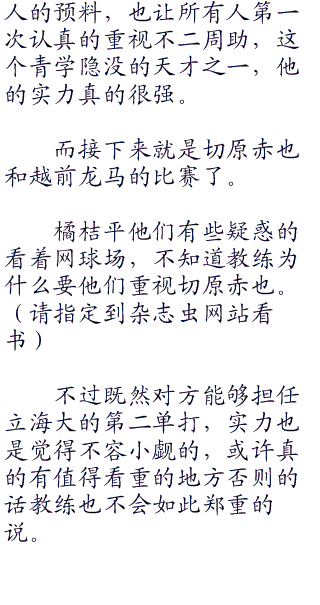 人的预料，也让所有人第一
次认真的重视不二周助，这
个青学隐没的天才之一，他
的实力真的很强。
而接下来就是切原赤也
和越前龙马的比赛了。
橘桔平他们有些疑惑的
看着网球场，不知道教练为
什么要他们重视切原赤也。
（请指定到杂志虫网站看
书）
不过既然对方能够担任
立海大的第二单打，实力也
是觉得不容小觑的，或许真
的有值得看重的地方否则的
话教练也不会如此郑重的
说。